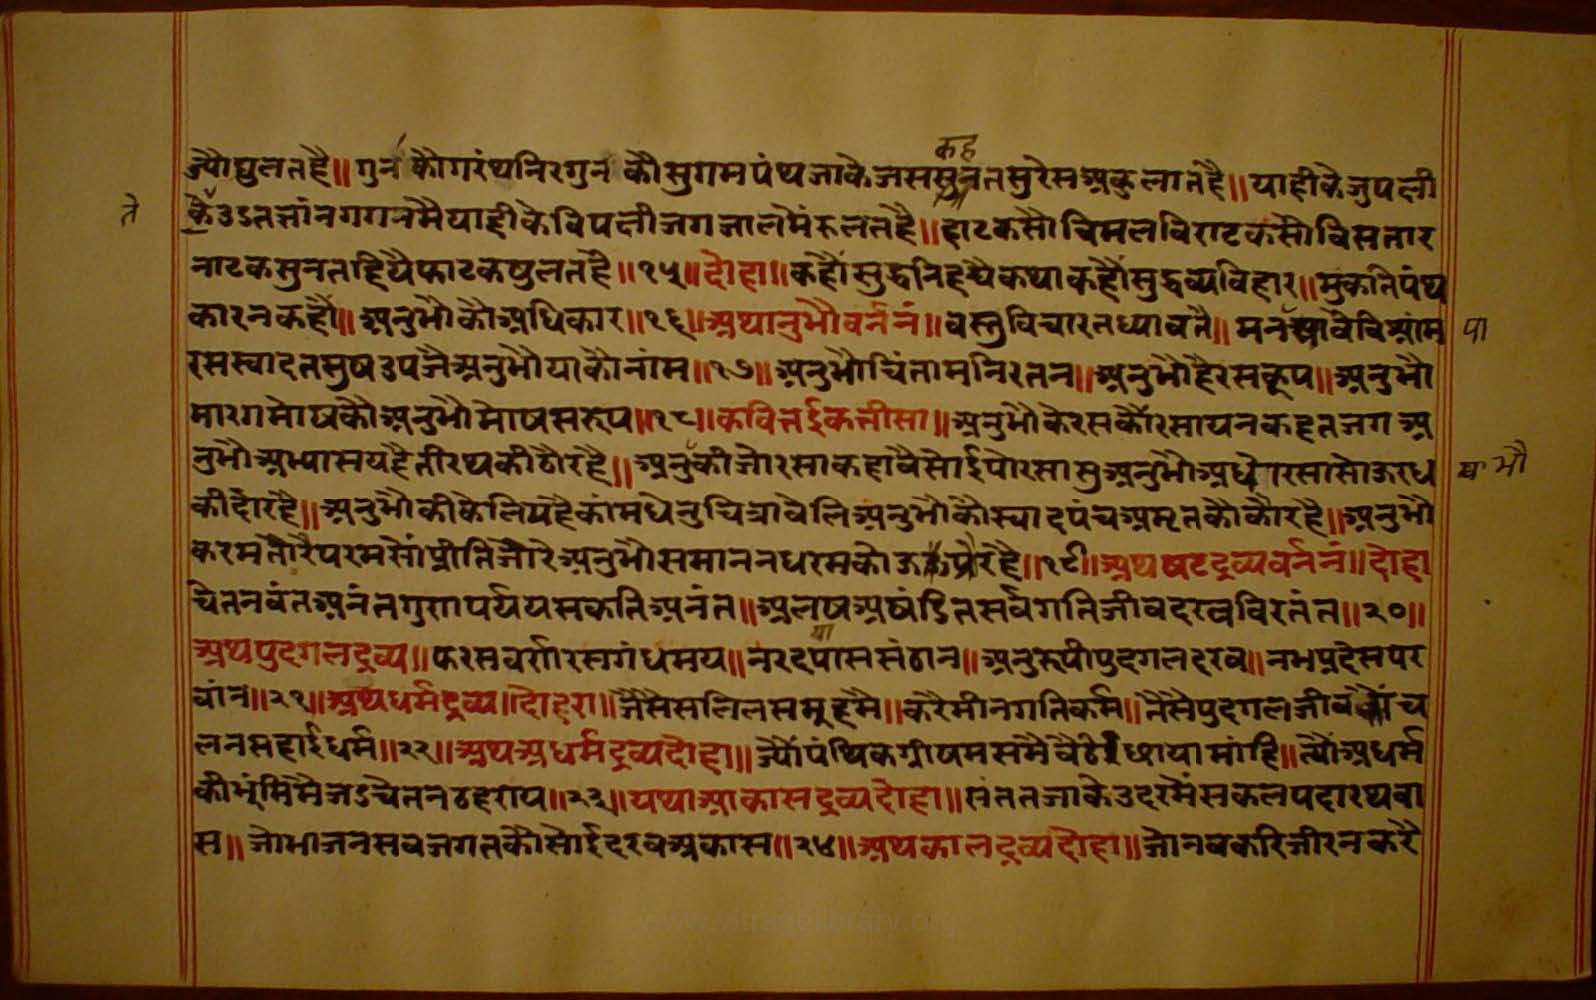 कह
ज्यौ घुलतहै॥ गुन कौगरंथनिरगुन कौसुगमपंथजाकेजससुनतसुरेसअकुलातहै॥ याहीकेजुपछी
ते कै उडतग्यांनगगनमैयाहीकेविपछीजगजालमेंरुलतहै॥ हाटकसौविमलविराटकसौविसतार
नाटकसुनतहियैफाटकषुलतहै॥१५॥दोहा॥कहौंसुद्धनिहचैकथाकहौंसुद्धव्यविहार॥मुकतिपंथ
कारनकहौं॥ अनुभौकौअधिकार॥१६॥अथानुभौवर्ननं॥ वस्तुविचारतध्यावतै॥ मनपावेविश्रांम पा
रसस्वादतसुषउपजैअनुभौयाकौनांम॥१७॥अनुभौचिंतामनिरतन॥अनुभौहैरसकूप॥अनुभौ
मारगमोषकौअनुभौमोषसरूप॥१८॥कवित्तईकतीसा॥अनुभौकेरसकौंरसायनकहतजग अ
नुभौअभ्यासयहैतीरथकीठौरहै॥अनुकीजोरसाकहावैसोईपोरसासुअनुभौअधोरसासोऊरध भौ
कीदौरहै॥अनुभौकीकेलियहैकांमधेनुचित्रावेलिअनुभौकौस्वादपंचअमृतकौकौरहै॥अनुभौ
करमतोरैपरमसोंप्रीतिजोरेअनुभौसमाननधरमकोऊऔरहै॥१९॥अथषटद्रव्यवर्ननं॥दोहा
चेतनवंतअनंतगुणपर्ययसकतिअनंत॥अलषअषंडितसर्वगतिजीवदरवविरतंत॥२०॥
या
अथपुदगलद्रव्य॥फरसवर्णरसगंधमय॥नरदपाससंठान॥अनुरूपीपुदगलदरव॥नभप्रदेसपर
वांन॥२१॥अथधर्मद्रव्य॥दोहरा॥जैसैसलिलसमूहमै॥करैमीनगतिकर्म॥तैसैपुदगलजीवकौंच
लनसहाईधर्म॥२२॥अथअधर्मद्रव्यदोहा॥ज्यौंपंथिकग्रीषमसमैबैठेंछायामांहि॥त्यौंअधर्म
कीभूंमिमैजडचेतनठहरांय॥२३॥यथाआकासद्रव्यदोहा॥संततजाकेउदरमैंसकलपदारथवा
स॥ जोभाजनसवजगतकौसोईदरवअकास॥२४॥अथकालद्रव्यदोहा॥जोनवकरिजीरनकरै